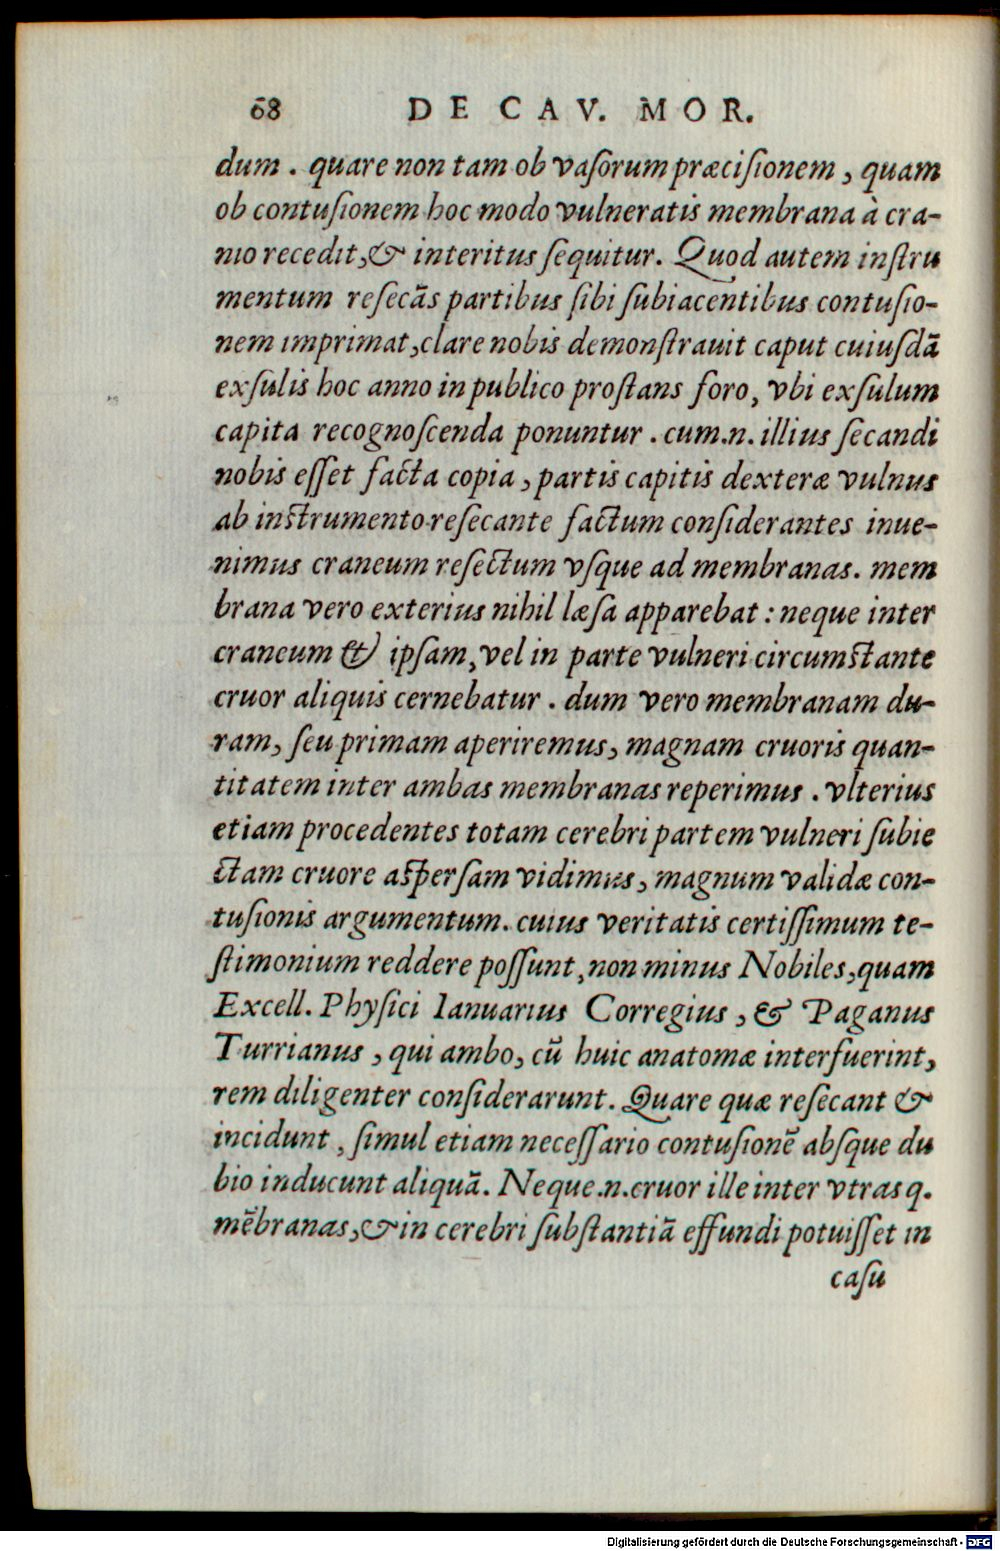 68 DE CAV. MOR.
dum. quare non tam ob vaſorum præciſionem, quam
ob contuſionem hoc modo vulneratis membrana à cra-
nio recedit, & interitus ſequitur. Quod autem inſtru
mentum reſecãs partibus ſibi ſubiacentibus contuſio-
nem imprimat, clare nobis demonſtrauit caput cuiuſdã
exſulis hoc anno in publico proſtans foro, vbi exſulum
capita recognoſcenda ponuntur. cum.n. illius ſecandi
nobis eſſet facta copia, partis capitis dexteræ vulnus
ab inſtrumento reſecante factum conſiderantes inue-
nimus craneum reſectum vſque ad membranas. mem
brana vero exterius nihil læſa apparebat: neque inter
craneum & ipſam, vel in parte vulneri circumſtante
cruor aliquis cernebatur. dum vero membranam du-
ram, ſeu primam aperiremus, magnam cruoris quan-
titatem inter ambas membranas reperimus. vlterius
etiam procedentes totam cerebri partem vulneri ſubie
ctam cruore aſperſam vidimus, magnum validæ con-
tuſionis argumentum. cuius veritatis certiſſimum te-
ſtimonium reddere poſſunt, non minus Nobiles, quam
Excell. Phyſici Ianuarius Corregius, & Paganus
Turrianus, qui ambo, cũ huic anatomæ interfuerint,
rem diligenter conſiderarunt. Quare quæ reſecant &
incidunt, ſimul etiam neceſſario contuſionẽ abſque du
bio inducunt aliquã. Neque.n.cruor ille inter vtrasq.
mẽbranas, & in cerebri ſubſtantiã effundi potuiſſet in
caſu
Digitalisierung gefördert durch die Deutsche Forschungsgemeinschaft - DFG